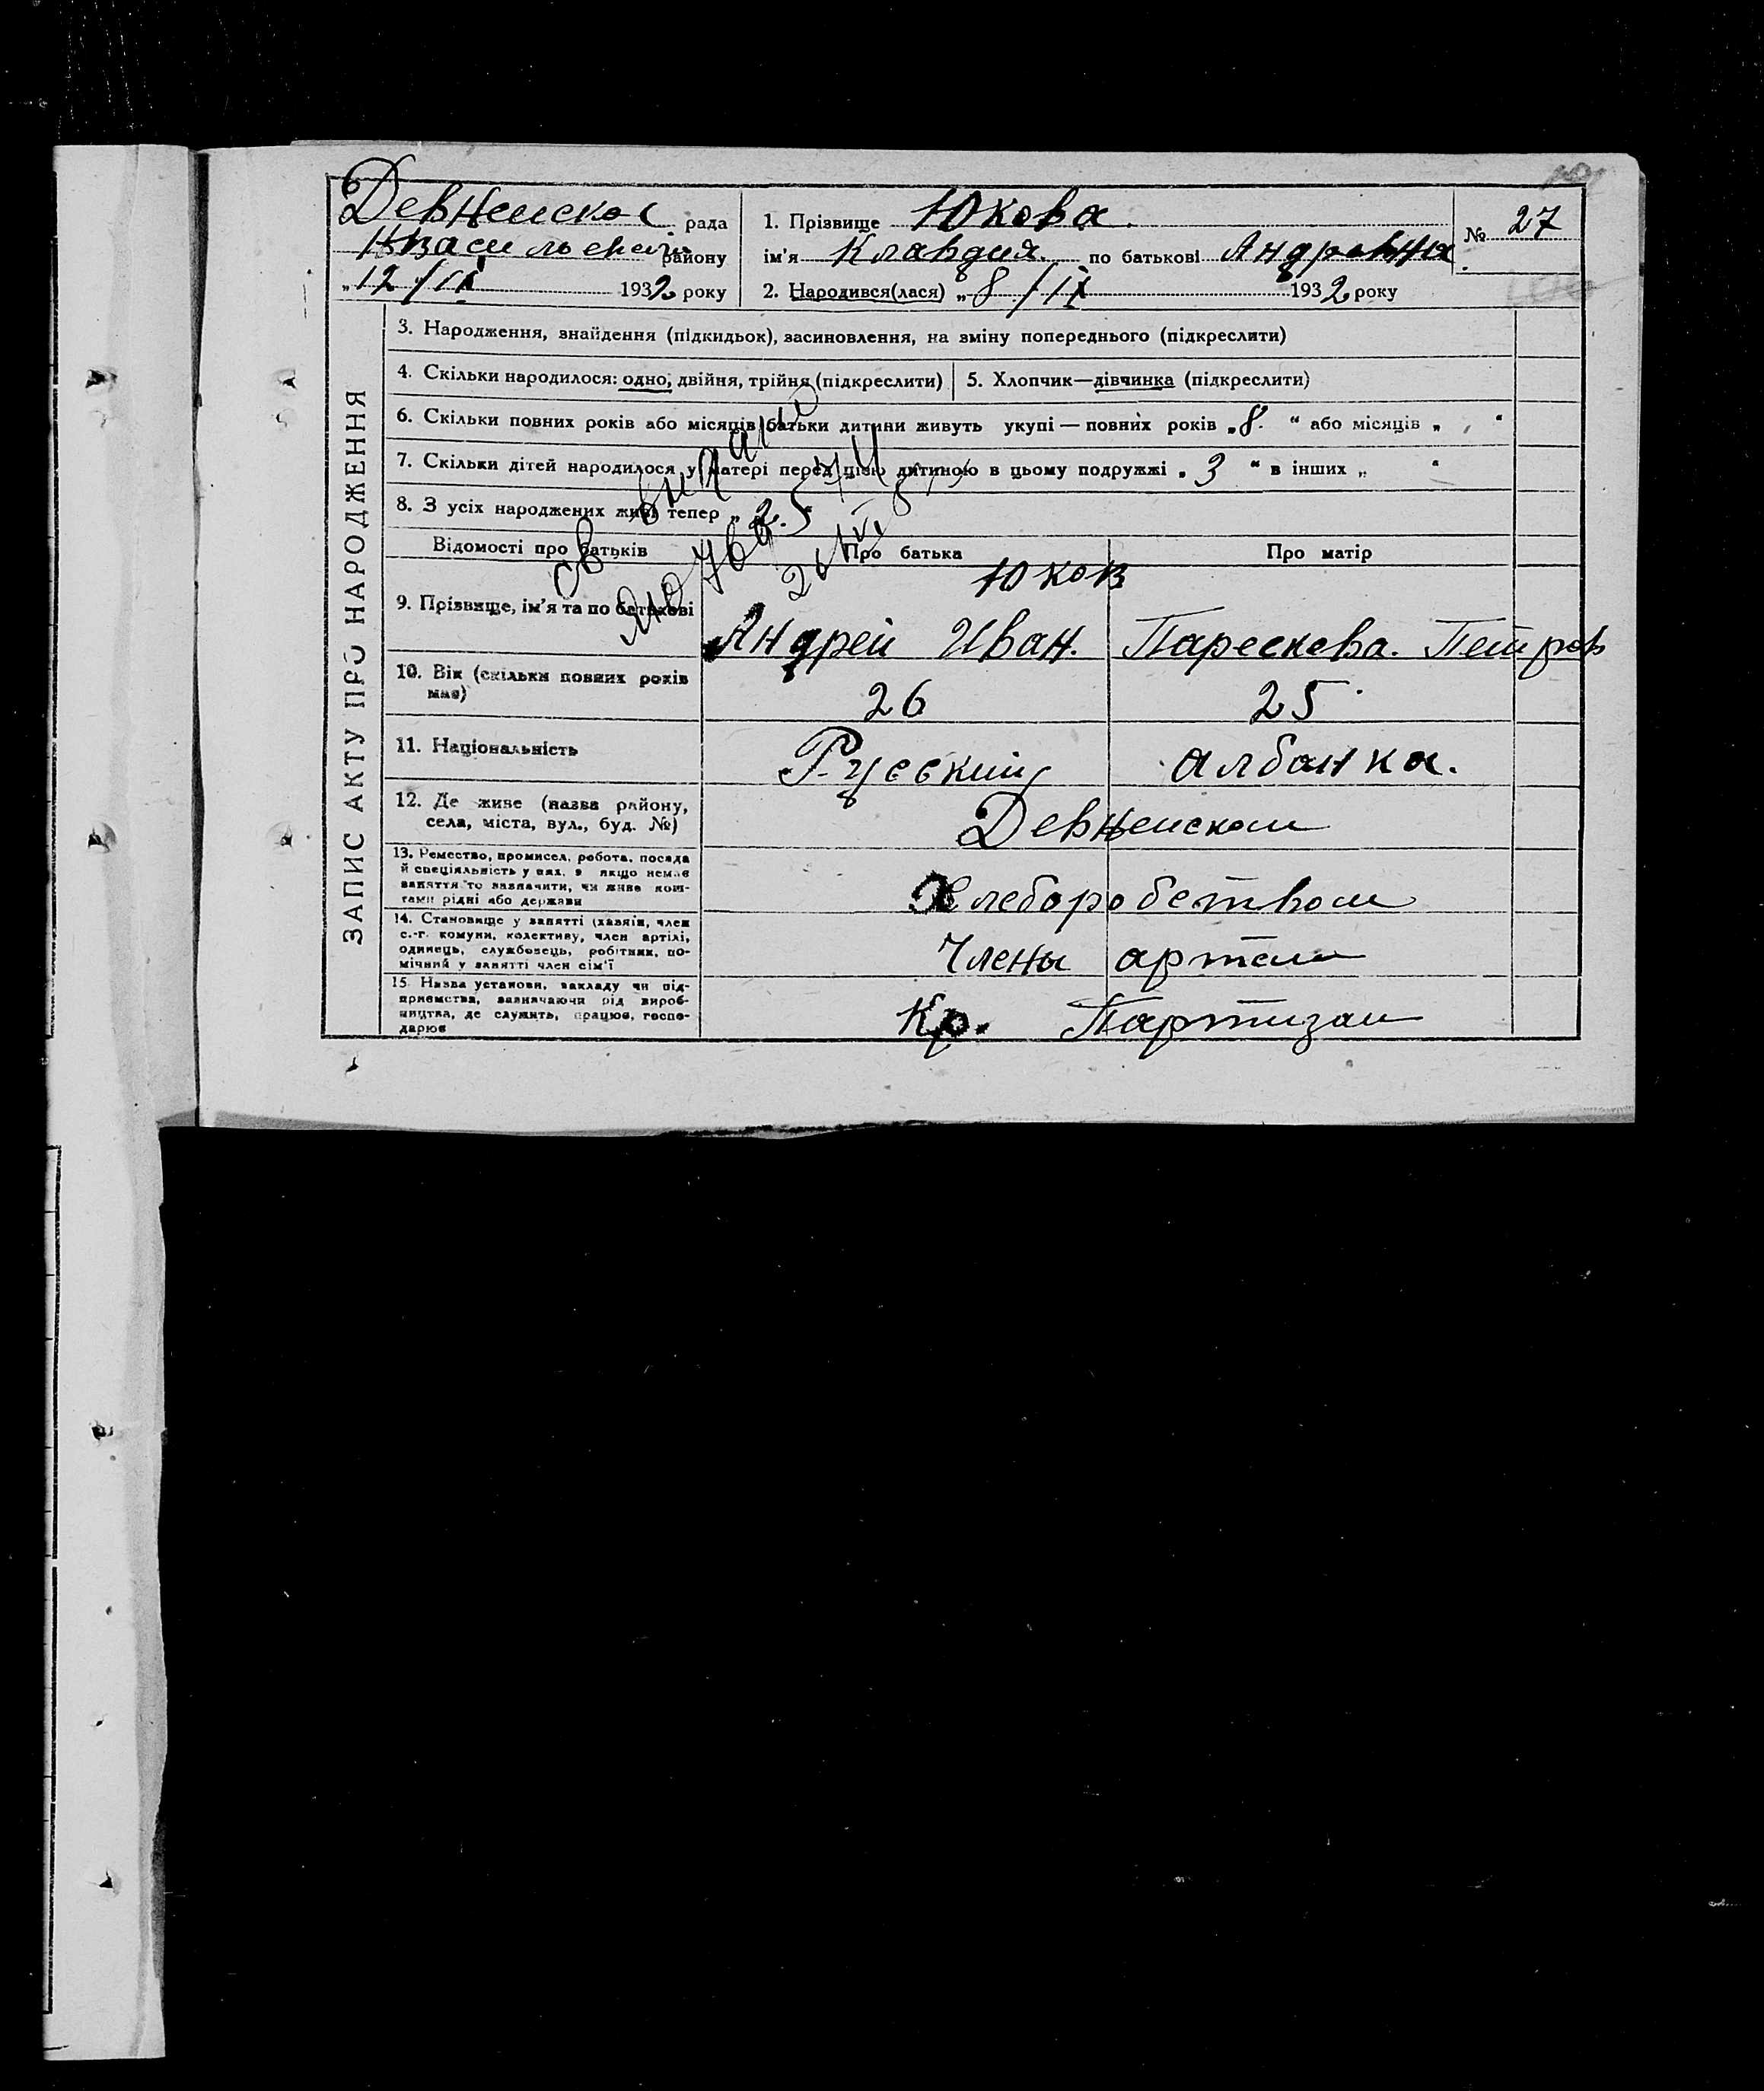 Девненской рада
Нвасильевск. району
„12/IX 1932 року
1. Прізвище Юкова
ім'я Клавдия. по батькові Андреевна
2. Народився(лася) „8/IX 1932 року
№ 27
ЗАПИС АКТУ ПРО НАРОДЖЕННЯ
3. Народження, знайдення (підкидьок), засиновлення, на зміну попереднього (підкреслити)
4. Скільки народилося: одно, двійня, трійня (підкреслити) 5. Хлопчик—дівчинка (підкреслити)
6. Скільки повних років або місяців батьки дитини живуть укупі — повних років „8." або місяців „ "
7. Скільки дітей народилося у матері перед цією дитиною в цьому подружжі „3" в інших „ "
8. З усіх народжених живі тепер „2."
Св выдано
Відомості про батьків Про батька Про матір
Юков
9. Прізвище, ім'я та по батькові Андрей Иван. Парескева. Петров
10. Вік (скільки повних років має) 26 25
11. Національність Русский албанка.
12. Де живе (назва району, села, міста, вул., буд. №) Девненском
13. Ремество, промисел, робота, посада й спеціяльність у них, а якщо немає заняття то зазначити, чи живе коштами рідні або держави Хлеборобством
14. Становище у занятті (хазяїн, член с.-г. комуни, колективу, член артілі, одинець, службовець, робітник, помічний у занятті член сім'ї Члены артели
15. Назва установи, закладу чи підприємства, зазначаючи рід виробництва, де служить, працює, господарює Кр. Партизан